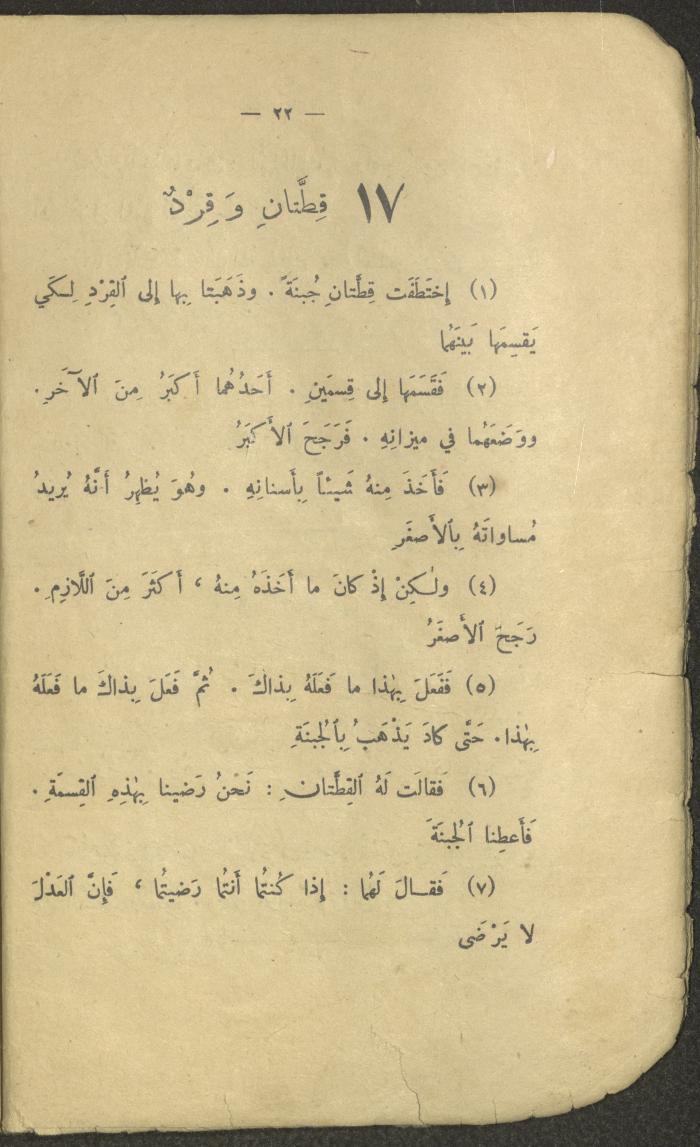 — ٢٢ —
١٧ قِطَّتانِ وَقِرْدٌ
(١) إِختَطَفَت قِطَّتانِ جُبنَةً . وذَهَبَتا بِها إِلى ٱلقِرْدِ لِكَي
يَقسِمَها بَينَهُما
(٢) فَقَسَمَها إِلى قِسمَينِ . أَحَدُهُما أَكبَرُ مِنَ ٱلآخَرِ .
ووَضَعَهُما في ميزانِهِ . فَرَجَحَ ٱلأَكبَرُ
(٣) فَأَخَذَ مِنهُ شَيئاً بِأَسنانِهِ . وهُوَ يُظهِرُ أَنَّهُ يُريدُ
مُساواتَهُ بِٱلأَصغَرِ
(٤) ولٰكِنْ إِذْ كانَ ما أَخَذَهُ مِنهُ ، أَكثَرَ مِنَ ٱللَّازِمِ .
رَجَحَ ٱلأَصغَرُ
(٥) فَفَعَلَ بِهٰذا ما فَعَلَهُ بِذاكَ . ثُمَّ فَعَلَ بِذاكَ ما فَعَلَهُ
بِهٰذا . حَتَّى كادَ يَذْهَبُ بِٱلجُبنَةِ
(٦) فَقالَت لَهُ ٱلقِطَّتانِ : نَحْنُ رَضينا بِهٰذِهِ ٱلقِسمَةِ .
فَأَعطِنا ٱلجُبنَةَ
(٧) فَقالَ لَهُما : إِذا كُنتُما أَنتُما رَضيتُما ، فَإِنَّ ٱلعَدْلَ
لا يَرْضَى